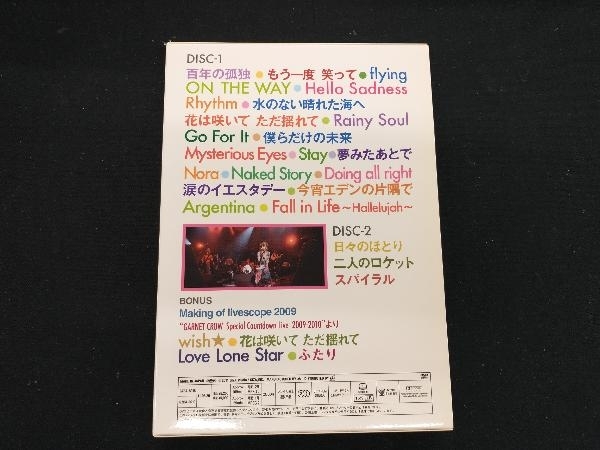 DISC-1
百年の孤独●もう一度 笑って●flying
ON THE WAY●Hello Sadness
Rhythm●水のない晴れた海へ
花は咲いて ただ揺れて●Rainy Soul
Go For It●僕らだけの未来
Mysterious Eyes●Stay●夢みたあとで
Nora●Naked Story●Doing all right
涙のイエスタデー●今宵エデンの片隅で
Argentina●Fall in Life ～Hallelujah～
DISC-2
日々のほとり
二人のロケット
スパイラル
BONUS
Making of livescope 2009
"GARNET CROW Special Countdown live 2009-2010"より
wish★●花は咲いて ただ揺れて
Love Lone Star●ふたり